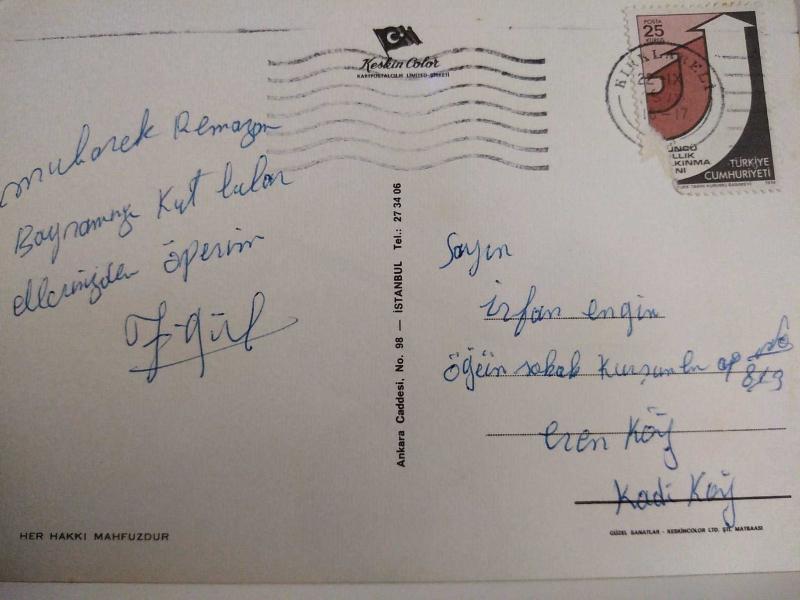 Keskin Color
KARTPOSTALCILIK LIMITED ŞİRKETİ
POSTA
25
KURUŞ
KIRKLARELİ
22 IX
16-17
ÜNCÜ
LLIK
KINMA
NI
TÜRKİYE
CUMHURİYETİ
muharek Remazan
Bayramınızı Kut lular
ellerinizden öperim
Ankara Caddesi, No. 98 — İSTANBUL Tel.: 27 34 06
Sayın
irfan engin
öğün sokak Kurşunlu ap
eren Köy
Kadi Köy
HER HAKKI MAHFUZDUR
GÜZEL SANATLAR - KESKİNCOLOR LTD. ŞTİ. MATBAASI